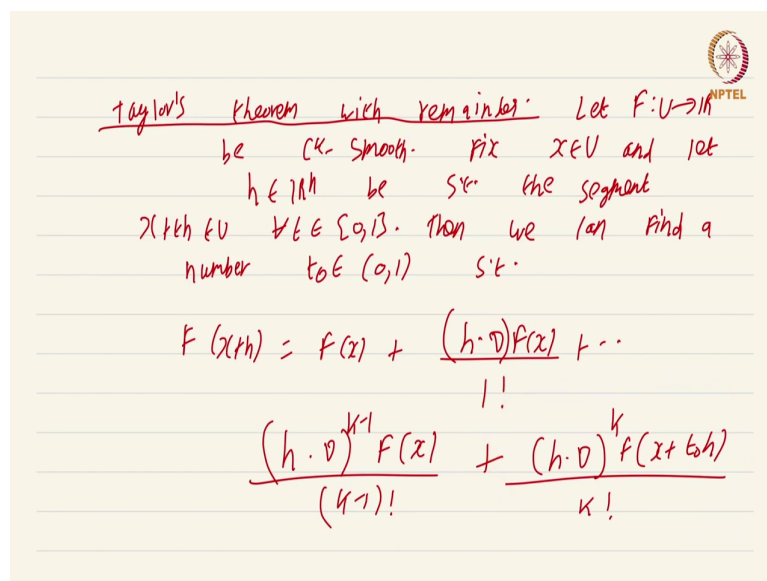 NPTEL
Taylor's theorem with remainder. Let F:U→ℝ
be Cᵏ- smooth. Fix x∈U and let
h ∈ ℝⁿ be s.t. the segment
x+th ∈U ∀t∈ [0,1]. Then we can find a
number t₀∈ (0,1) s.t.
F (x+h) = F(x) + (h·∇)F(x)/1! + ...
(h·∇)^{k-1} F(x)/(k-1)! + (h·∇)^k F(x+t₀h)/k!